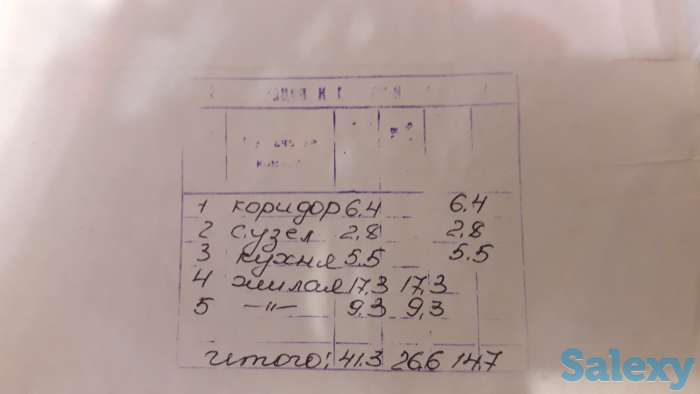 1 коридор 6.4 6.4
2 с.узел 2,8 2,8
3 кухня 5.5 5.5
4 жилая 17,3 17,3
5 —〃— 9.3 9,3
Итого: 41.3 26.6 14.7
Salexy